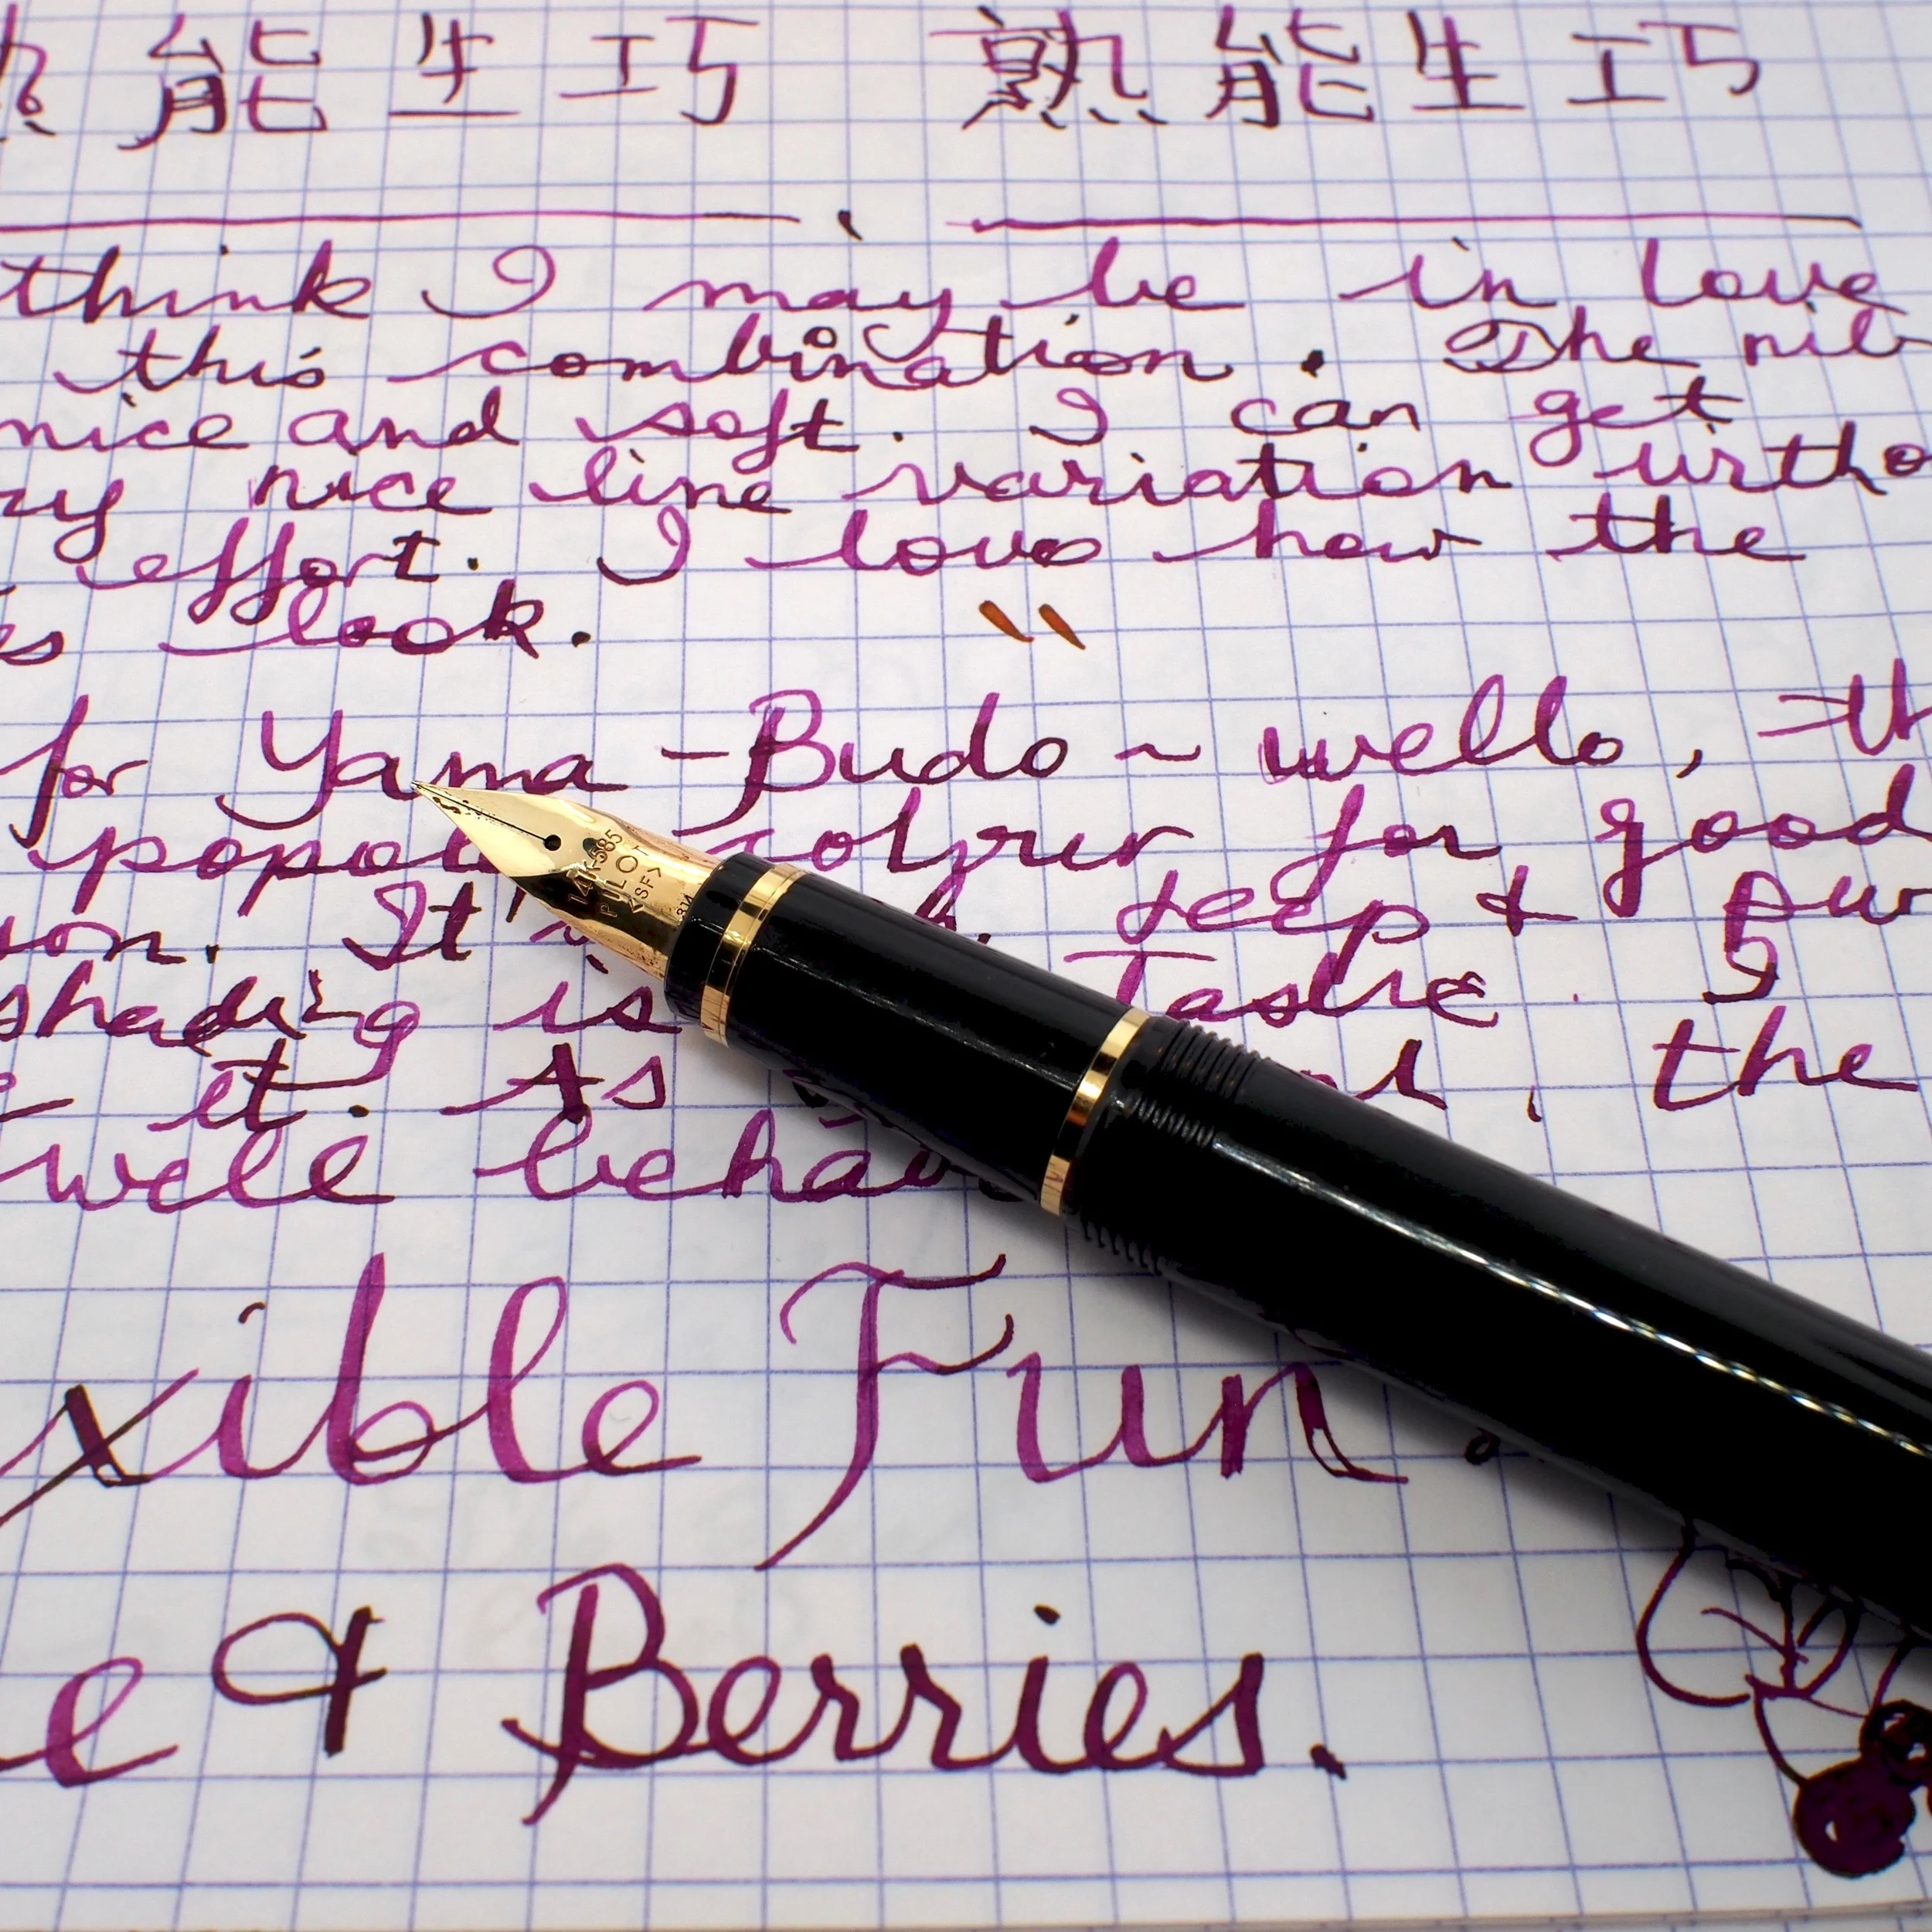 熟能生巧 熟能生巧
think I may be in love
this combination. The nib
nice and soft. I can get
nice line variation witho
effort. I love how the
look. "
for Yama-Budo ~ wello, th
for good
on. It deep &
shading is
it. As the
well behav
xible Fun.
e & Berries.
14K-585
PILOT
<SF>